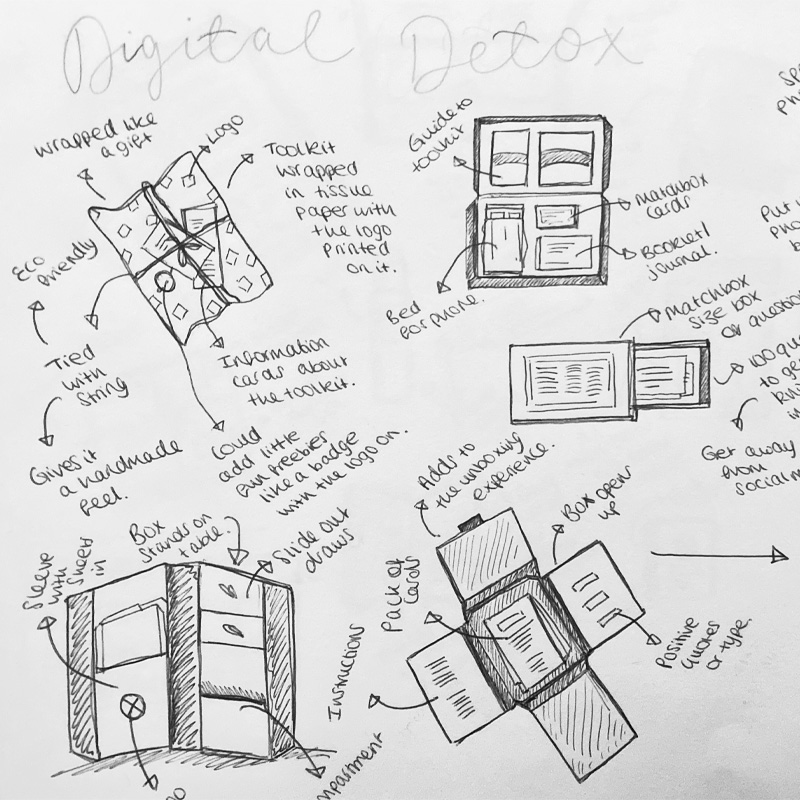 Digital Detox
Wrapped like
a gift
Logo
Toolkit
wrapped
in tissue
paper with
the logo
printed
on it.
Eco
friendly
Tied
with
string
Gives it
a handmade
feel.
Information
cards about
the toolkit.
Could
add little
fun freebies
like a badge
with the logo on.
Guide to
toolkit
Matchbox
cards
Booklet/
journal.
Bed
for phone.
Matchbox
size box
of question
100 que
to ge
kn
in
Get away
from
social m
Spe
pho
Put
pho
b
Sleeve
with
sheet
in
Box
stands on
table.
Slide out
draws
mpartment
Adds to
the unboxing
experience.
Box opens
up
Pack of
cards
Instructions
Positive
quotes
or type.